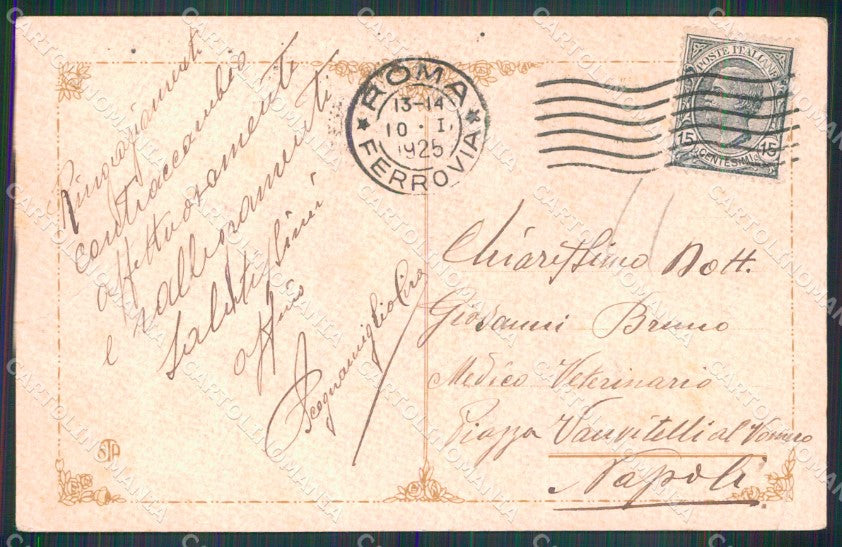 Ringraziamenti
contraccambio
affettuosamente
e rallegramenti
salutissimi
aff/mo
Scognamiglio Ciro
ROMA
13-14
10 · I.
1925
FERROVIA
POSTE ITALIANE
15 CENTESIMI 15
Chiarissimo Dott.
Giovanni Bruno
Medico Veterinario
Piazza Vanvitelli al Vomero
Napoli
CARTOLINOMANIA